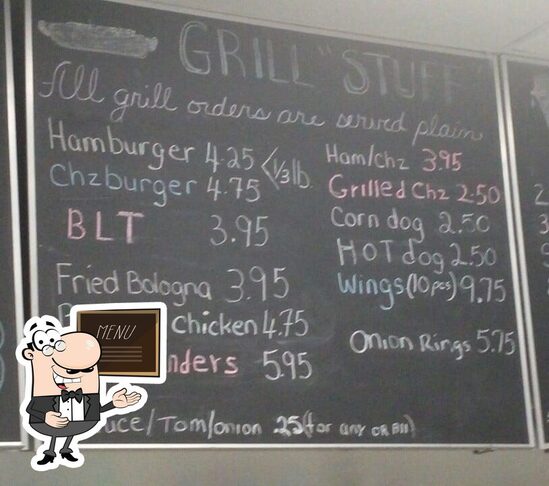 GRILL "STUFF"
All grill orders are served plain
Hamburger 4.25 < 1/3 lb.
Chzburger 4.75
BLT 3.95
Fried Bologna 3.95
Chicken 4.75
nders 5.95
uce/Tom/onion .25 (for any or all)
Ham/chz 3.95
Grilled Chz 2.50
Corn dog 2.50
HOT dog 2.50
Wings (10 pcs) 9.75
Onion Rings 5.75
MENU